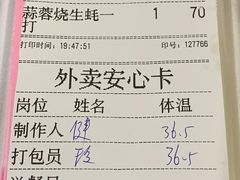 蒜蓉烧生蚝一 1 70
打
打印时间:19:47:51 印号:127766
外卖安心卡
岗位 姓名 体温
制作人 健 36.5
打包员 玲 36.5
送餐员